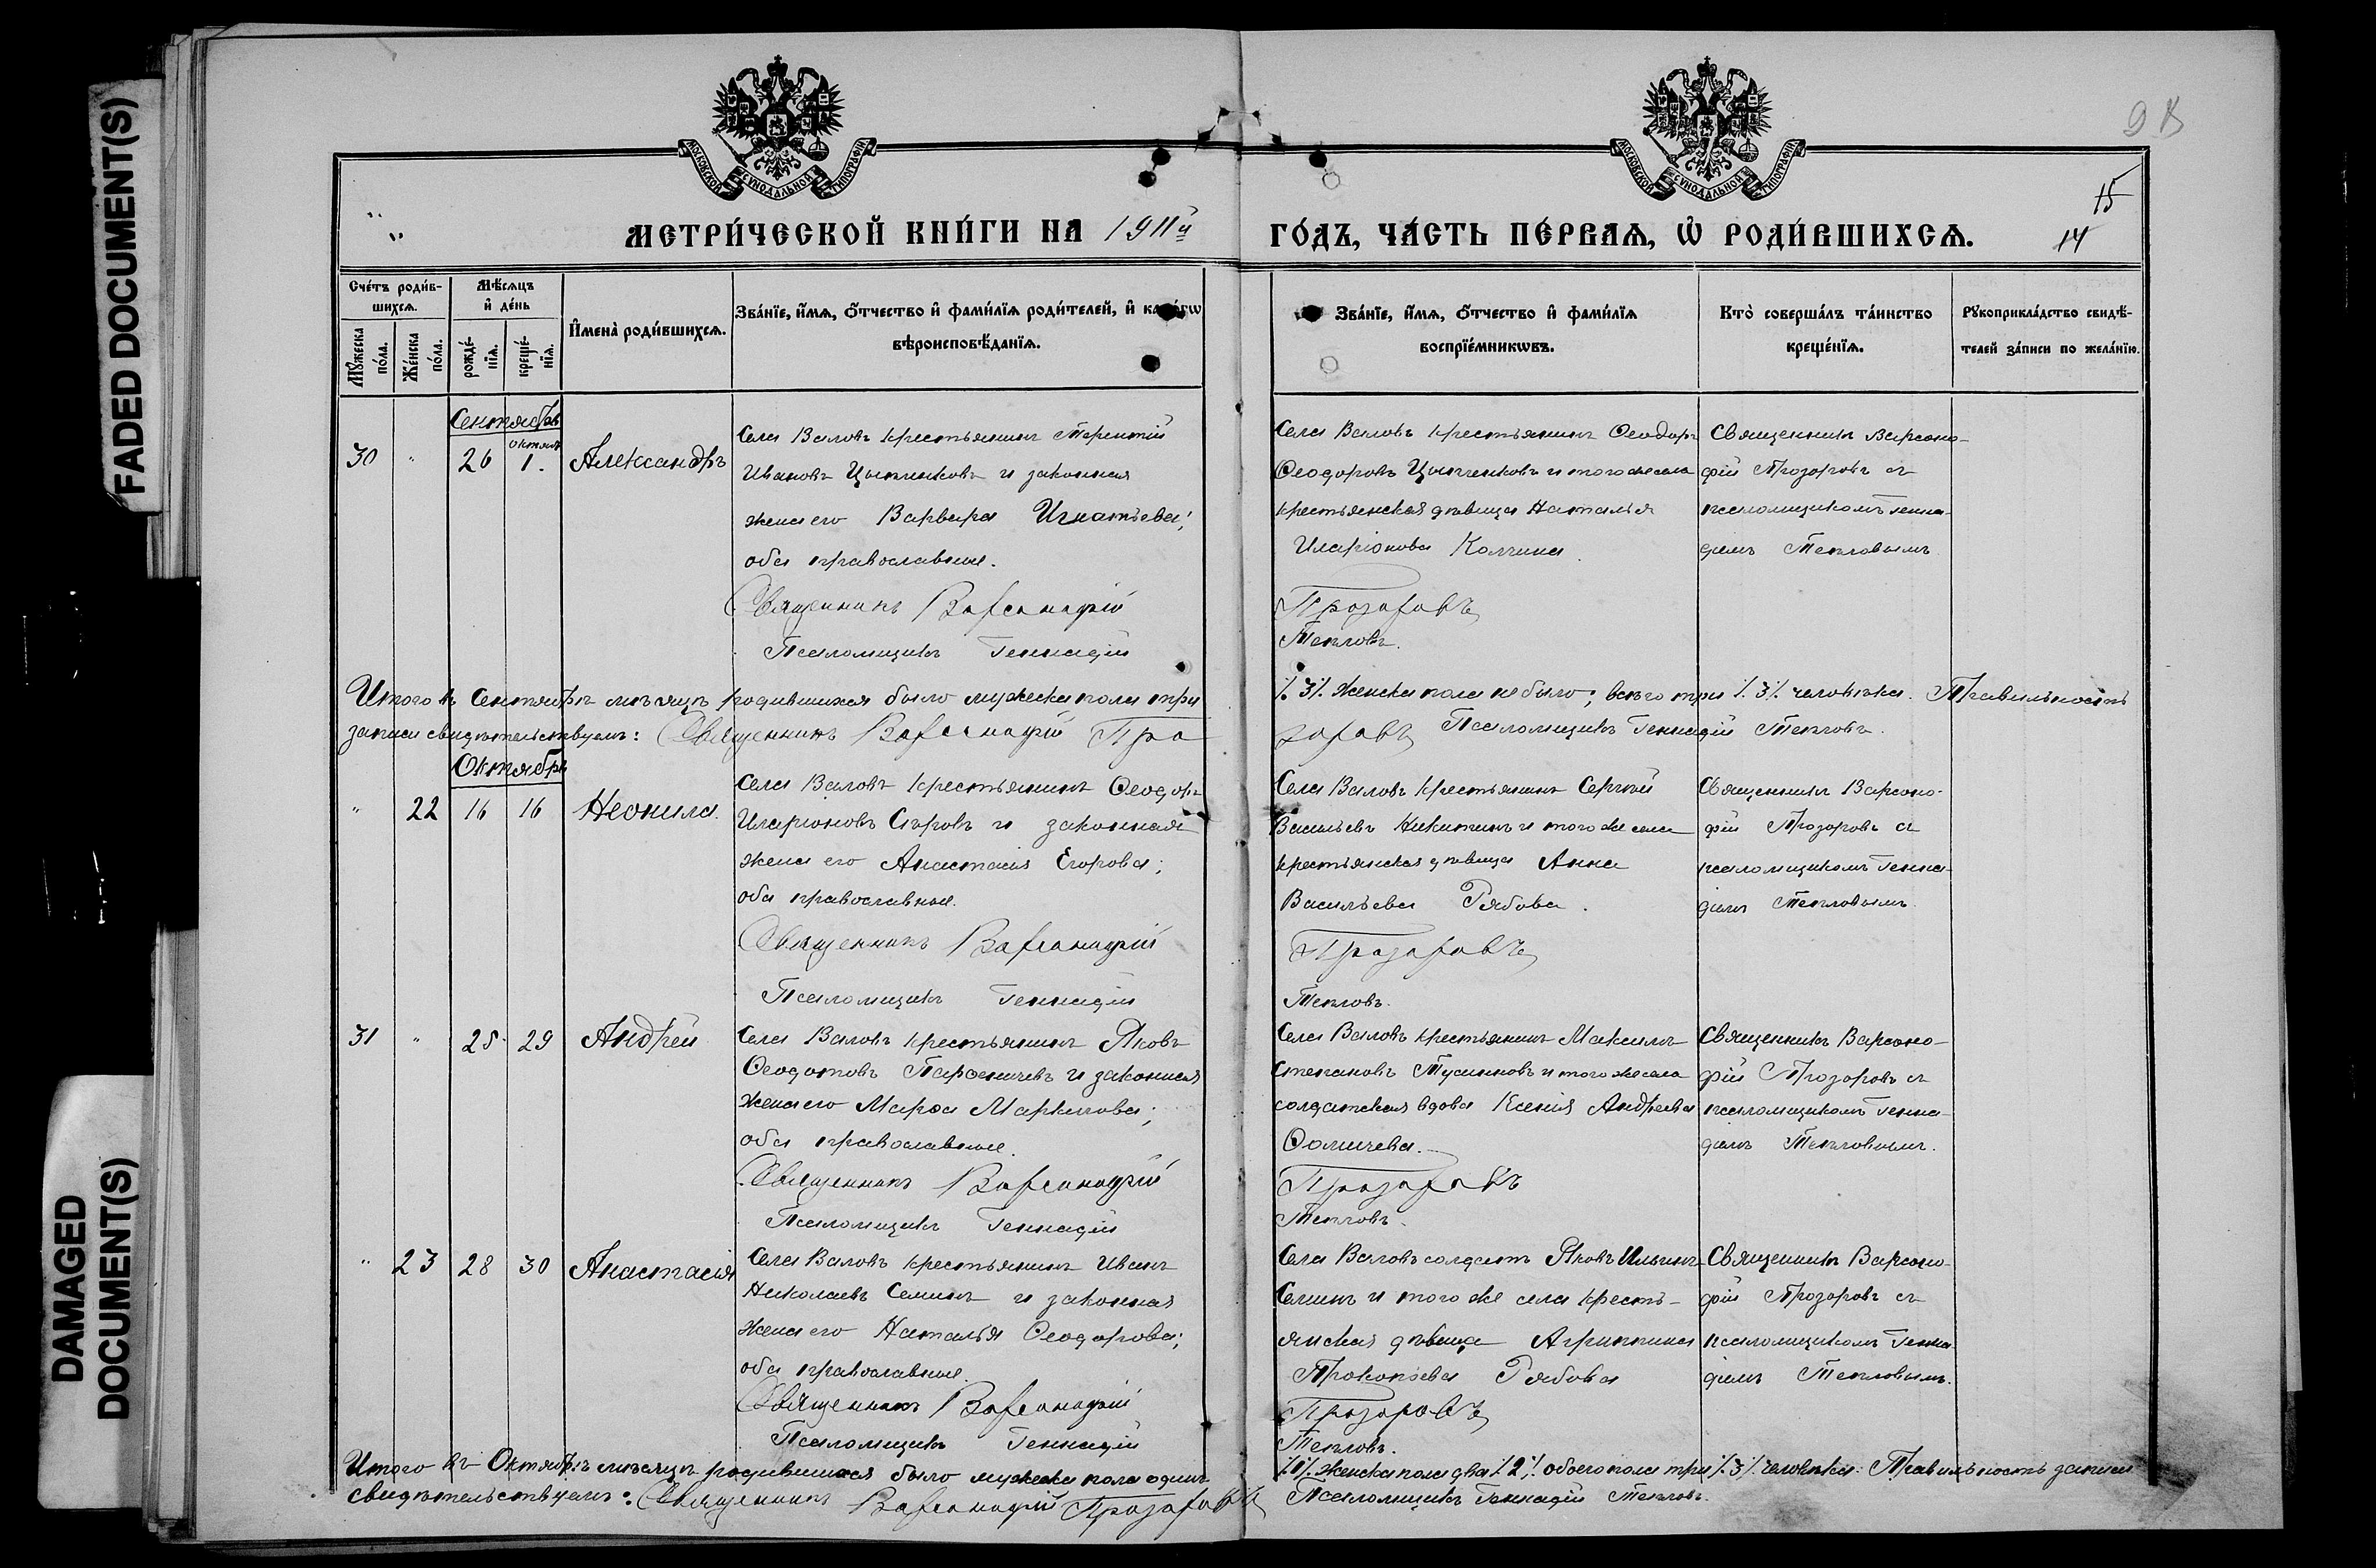 FADED DOCUMENT(S)
DAMAGED
DOCUMENT(S)
МОСКОВСКОЙ СѴНОДАЛЬНОЙ ТИПОГРАФІИ
МОСКОВСКОЙ СѴНОДАЛЬНОЙ ТИПОГРАФІИ
15
14
МЕТРИ́ЧЕСКОЙ КНИ́ГИ НА 1911й
ГО́ДЪ, ЧА́СТЬ ПЕ́РВАѦ, Ѡ РОДИ́ВШИХСѦ.
Сче́тъ роди́в-
шихсѧ.
Мꙋ́жеска
по́ла.
Же́нска
по́ла.
Мѣ́сѧцъ
и҆ де́нь
рожде́-
нїѧ.
креще́-
нїѧ.
И҆мена̀ роди́вшихсѧ.
Зва́нїе, и҆́мѧ, ѻ҆́тчество и҆ фами́лїѧ роди́телей, и҆ како́гѡ
вѣроисповѣ́данїѧ.
Зва́нїе, и҆́мѧ, ѻ҆́тчество и҆ фами́лїѧ
воспрїе́мникѡвъ.
Кто̀ соверша́лъ та́инство
креще́нїѧ.
Рꙋкоприкла́дство свидѣ́-
телей за́писи по жела́нїю.
Сентябрь
30 " 26 октяб. 1. Александръ
Села Валовъ крестьянинъ Терентій
Ивановъ Цыпленковъ и законная
жена его Варвара Игнатьева;
оба православные.
Священникъ Варсонофій
Псаломщикъ Геннадій
Села Валовъ крестьянинъ Ѳеодоръ
Ѳеодоровъ Цыпленковъ и того же села
крестьянская дѣвица Наталья
Иларіонова Колчина.
Прозоровъ
Тепловъ.
Священникъ Варсоно-
фій Прозоровъ съ
псаломщикомъ Генна-
діемъ Тепловымъ
Итого въ Сентябрѣ мѣсяцѣ родившихся было мужеска пола три
записи свидѣтельствуемъ: Священникъ Варсонофій Про
⁒ 3 ⁒ женска пола не было; всего три ⁒ 3 ⁒ человѣка. Правильность
зоровъ Псаломщикъ Геннадій Тепловъ.
Октябрь
" 22 16 16 Неонила.
Села Валовъ крестьянинъ Ѳеодоръ
Иларіоновъ Сѣровъ и законная
жена его Анастасія Егорова;
оба православные.
Священникъ Варсонофій
Псаломщикъ Геннадій
Села Валовъ крестьянинъ Сергій
Васильевъ Никитинъ и того же села
крестьянская дѣвица Анна
Васильева Рябова.
Прозоровъ
Тепловъ.
Священникъ Варсоно-
фій Прозоровъ съ
псаломщикомъ Генна-
діемъ Тепловымъ.
31 " 25 29 Андрей
Села Валовъ крестьянинъ Яковъ
Ѳеодотовъ Парѳеничевъ и законная
жена его Марѳа Маркелова;
оба православные.
Священникъ Варсонофій
Псаломщикъ Геннадій
Села Валовъ крестьянинъ Максимъ
Степановъ и того же села
солдатская вдова Ксенія Андреева
Ѳомичева.
Прозоровъ
Тепловъ.
Священникъ Варсоно-
фій Прозоровъ съ
псаломщикомъ Генна-
діемъ Тепловымъ.
" 23 28 30 Анастасія
Села Валовъ крестьянинъ Иванъ
Николаевъ Семинъ и законная
жена его Наталья Ѳеодорова;
оба православные.
Священникъ Варсонофій
Псаломщикъ Геннадій
Села Валовъ солдатъ Яковъ Ильинъ
Семинъ и того же села кресть-
янская дѣвица Агриппина
Прокопіева Рябова
Прозоровъ
Тепловъ.
Священникъ Варсоно-
фій Прозоровъ съ
псаломщикомъ Генна-
діемъ Тепловымъ.
Итого въ Октябрѣ мѣсяцѣ родившихся было мужеска пола одинъ
свидѣтельствуемъ: Священникъ Варсонофій Прозоровъ
⁒ 1 ⁒ женска пола два ⁒ 2 ⁒ обоего пола три ⁒ 3 ⁒ человѣка. Правильность записи
Псаломщикъ Геннадій Тепловъ.